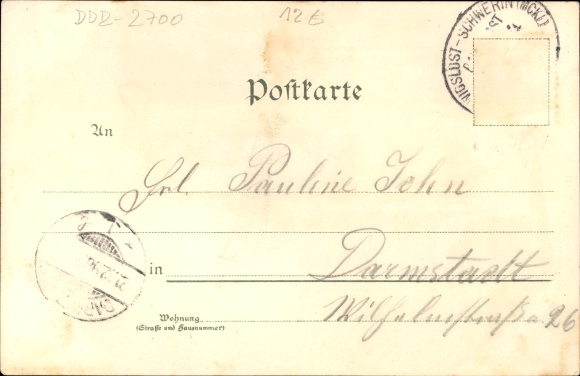 DDR-2700 12€
WIGSLUST-SCHWERIN (MCKL)
Postkarte
An
Frl. Pauline John
in Darmstadt
Wilhelmstraße 26
Wohnung
(Straße und Hausnummer)